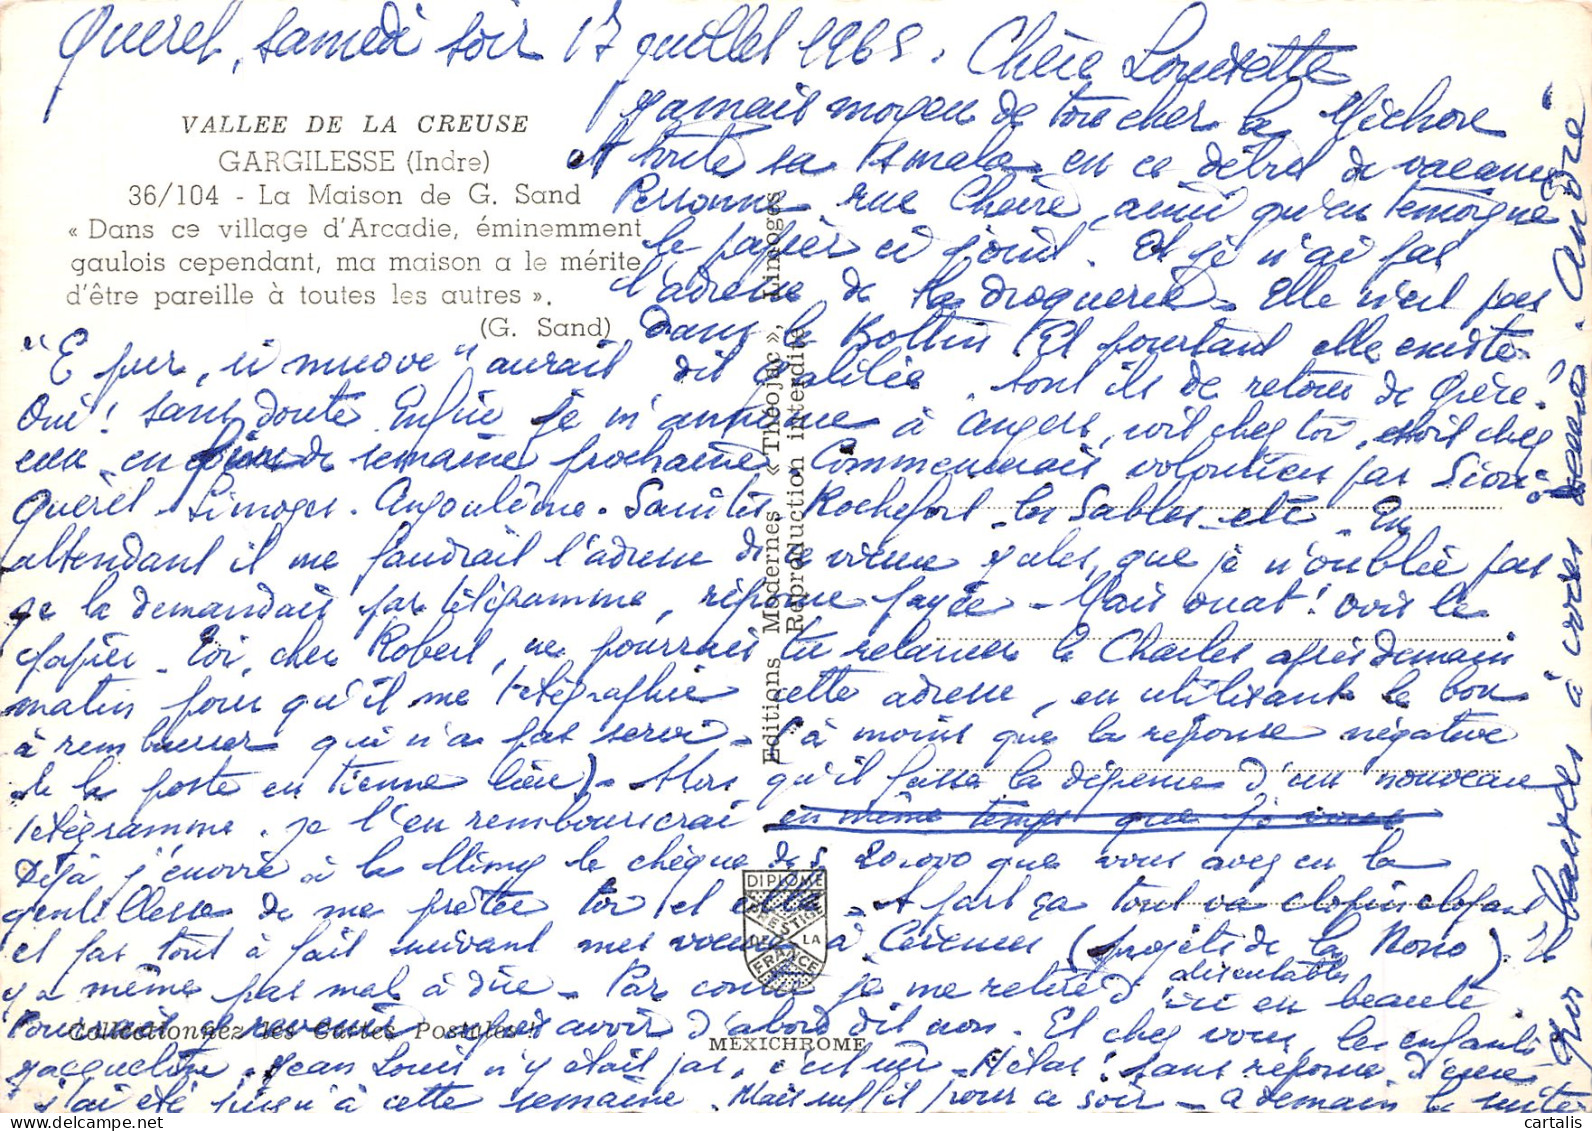 Quérel, samedi soir 17 juillet 1965. Chère Louisette
Jamais moyen de toucher la Michou
et toute sa smala en ce début de vacances
Personne rue Chèvre, ainsi qu'en témoigne
le papier ci joint. Et je n'ai pas
l'adresse de la droguerie. Elle n'est pas
dans le Bottin. Et pourtant elle existe
VALLEE DE LA CREUSE
GARGILESSE (Indre)
36/104 - La Maison de G. Sand
« Dans ce village d'Arcadie, éminemment
gaulois cependant, ma maison a le mérite
d'être pareille à toutes les autres ».
(G. Sand)
"E pur, si muove" aurait dit Galilée. Sont ils de retour de Grèce?
Oui! sans doute. Enfin je m'annonce à Angers, soit chez toi, soit chez
eux en fin de semaine prochaine. Commencerais volontiers par
Quérel - Limoges. Angoulême. Saintes Rochefort - les Sables - etc. En
attendant il me faudrait l'adresse de ce vieux Jules, que je n'oublie pas
Je la demandais par télégramme, réponse payée - Mais ouat! Vois le
papier. Toi, cher Robert, ne pourrais tu relancer le Charles après demain
matin pour qu'il me télégraphie cette adresse, en utilisant le bon
à rembourser qui n'a pas servi - (à moins que la réponse négative
de la poste en tienne lieu) - Alors qu'il fasse la dépense d'un nouveau
télégramme. Je l'en rembourserai en même temps que je vous
Déjà j'envoie à la Mimy le chèque de 20.000 que vous avez eu la
gentillesse de me prêter toi et elle. A part ça tout va clopin clopant
et pas tout à fait suivant mes voeux à (projets de la Nono). Il
y a même pas mal à dire - Par contre je me retire d' discutables en beauté
pour avoir d'abord dit non. Et chez vous, les enfants
Jacqueline, Jean Louis n'y était pas, c'est sûr. Hélas! sans réponse d'eux
j'ai été jusqu'à cette semaine. Mais suffit pour ce soir - à demain la suite
Bons baisers à vous deux. André"
Editions Modernes « Théojac », Limoges
Reproduction interdite
DIPLOME
PRESTIGE
DE LA
FRANCE
Collectionnez les Cartes Postales !
MEXICHROME
cartalis